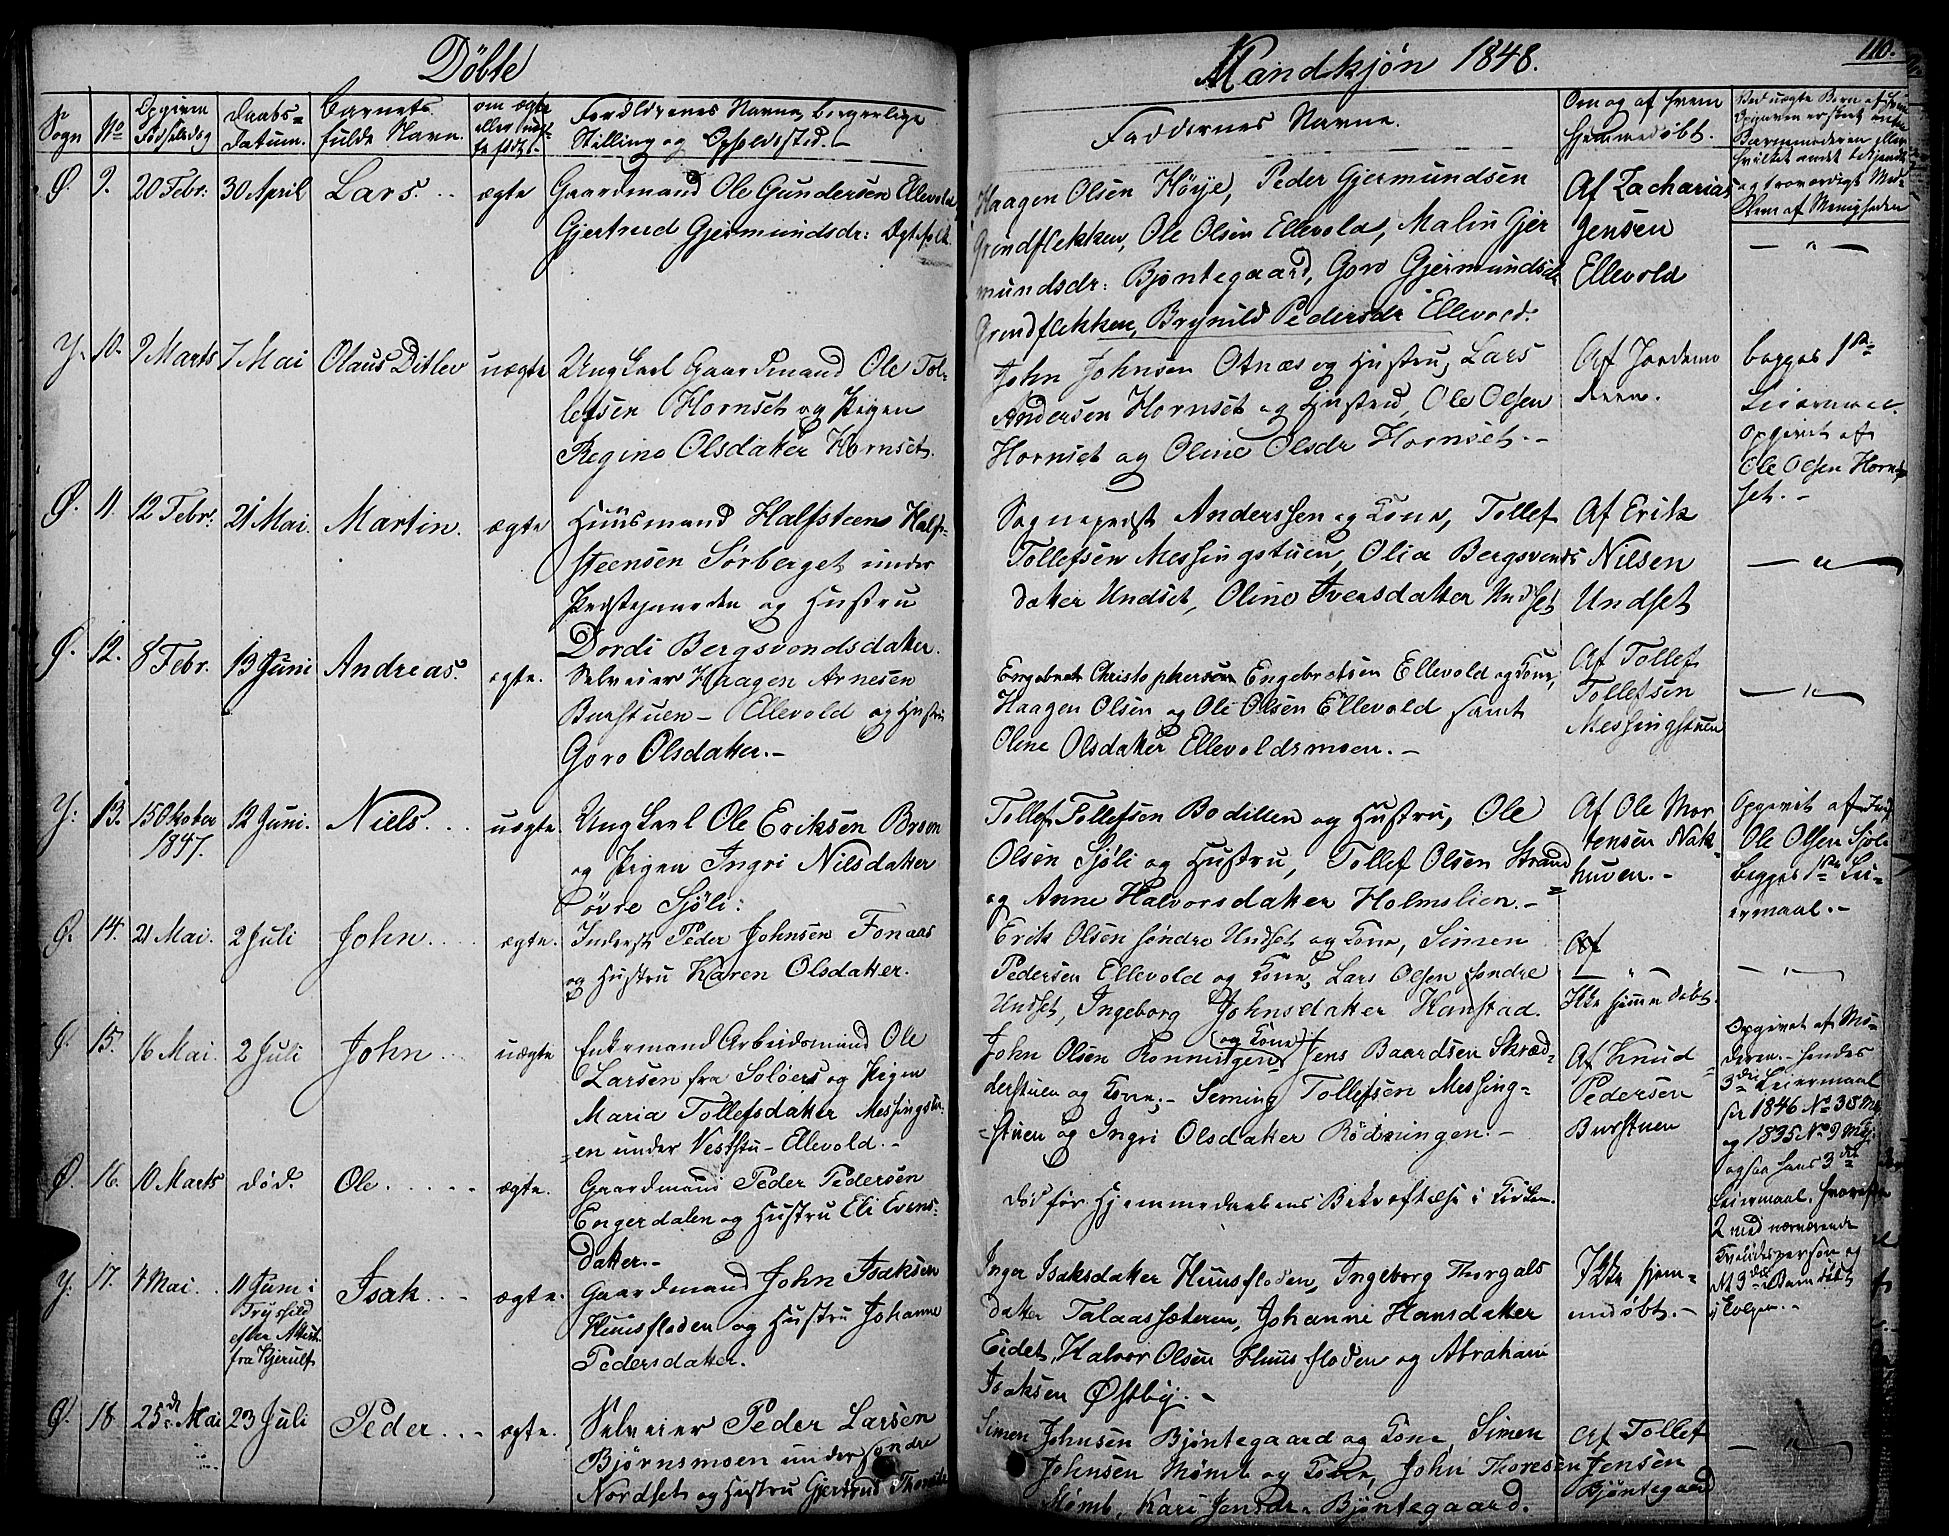 Döbte
Mandkjøn 1848.
110.
Sogn
No
Opgiven Fødselsdag
Daabs-Datum.
Barnets fulde Navn.
om ægte eller uægte født.
Forældrenes Navne, borgerlige Stilling og Opholdssted.
Faddernes Navne.
Om og af hvem hjemmedøbt.
Ø. 9. 20 Febr. 30 April Lars. ægte
Gaardmand Ole Gundersen Ellevold
Gjertrud Gjermundsdr: Ægtefolk
Haagen Olsen Höye, Peder Gjermundsen
Grendflekken, Ole Olsen Ellevold, Malin Gjer
mundsdr: Bjöntegaard, Goro Gjermundsdr
Grendflekken, Brynild Pedersdr Ellevold.
Af Zacharias
Jensen
Ellevold
Y. 10. 9 Marts 7 Mai Olaus Ditlev uægte
Ungkarl Gaardmand Ole Tol-
lefsen Hornset og Pigen
Regine Olsdatter Hornset.
John Johnsen Otnæs og Hustru, Lars
Andersen Hornset og Hustru, Ole Olsen
Hornset og Oline Olsdr Hornset.-
Af Jordemo
deren.
begges 1ste
Leiermaal.
Opgivet af
Ole Olsen Horn
set.-
Ø. 11. 12 Febr. 21 Mai. Martin. ægte
Huusmand Halfsteen Half-
steensen Sørberget under
Præstegaarden og Hustru
Dordi Bergsvendsdatter.
Sognepræst Anderssen og Kone, Tollef
Tollefsen Messingstuen, Olia Bergsvends
datter Undset, Oline Iversdatter Undset
Af Erik
Nilsen
Undset
Ø. 12. 8 Febr. 13 Juni Andreas. ægte.
Selveier Haagen Arnesen
Burstuen - Ellevold og Hustru
Goro Olsdatter.-
Engebret Christophersen Engebretsen Ellevold og Kone,
Haagen Olsen og Ole Olsen Ellevold samt
Oline Olsdatter Ellevoldsmoen.-
Af Tollef
Tollefsen
Messingstuen
Y: 13. 15 Oktober 1847. 12 Juni. Niels. uægte.
Ungkarl Ole Eriksen Broen
og Pigen Ingri Nilsdatter
øvre Sjöli:
Tollef Tollefsen Bodillen og Hustru, Ole
Olsen Sjöli og Hustru, Tollef Olsen Strand
og Anne Halvorsdatter Holmslien.-
Af Ole Mor
tensen Nak-
huven.-
Opgivet af
Ole Olsen Sjöli
begges 1ste Lei-
ermaal.-
Ø. 14. 21 Mai. 2 Juli John. ægte.
Inderst Peder Johnsen Fonaas
og Hustru Karen Olsdatter.
Erik Olsen søndre Undset og Kone, Simen
Pedersen Ellevold og Kone, Lars Olsen søndre
Undset, Ingeborg Johnsdatter Hanstad.
Af
Ikke hjemmedøbt.
Ø. 15. 16 Mai. 2 Juli John. uægte
Enkemand Arbeidsmand Ole
Larsen fra Soløer og Pigen
Maria Tollefsdatter Messingstu-
en under Veststu - Ellevold.-
John Olsen Ronningen (og Kone) Jens Baardsen Skræd-
derstuen og Kone,- Seming Tollefsen Messing-
stuen og Ingri Olsdatter Rödningen.-
Af Knud
Pedersen
Burstuen
Opgivet af Mo-
deren.- hendes
3die Leiermaal
før 1846 No 38
og 1835 No 9
ogsaa hans 3die
Leiermaal, hvoraf
2 med nærværende
Fruentimmer og
i Elven.-
Ø. 16. 10 Marts død. Ole ægte.
Gaardmand Peder Pedersen
Engerdalen og Hustru Eli Evens-
datter.-
død før Hjemmedaabens Bekræftelse i Kirken.
Y. 17. 4 Mai. 11 Juni i
Trysild
efter Attest
fra Kjerulf
Isak ægte.
Gaardmand John Isaksen
Huusfloden og Hustru Johanne
Pedersdatter.
Inger Isaksdatter Huusfloden, Ingeborg Thorgals
datter Talaassæteren, Johanne Hansdatter
Eidet, Halvor Olsen Huusfloden og Abraham
Isaksen Østby.-
Ikke hjem-
medøbt.-
Ø. 18 25de Mai 23 Juli Peder ægte.
Selveier Peder Larsen
Björnsmoen under søndre
Nordset og Hustru Gjertrud
Simen Johnsen Bjöntegaard og Kone, Simen
Johnsen Mömb og Kone, John Thoresen
Mömb, Kari Jensdr. Bjöntegaard.
Af Tollef
Jensen
Bjöntegaard